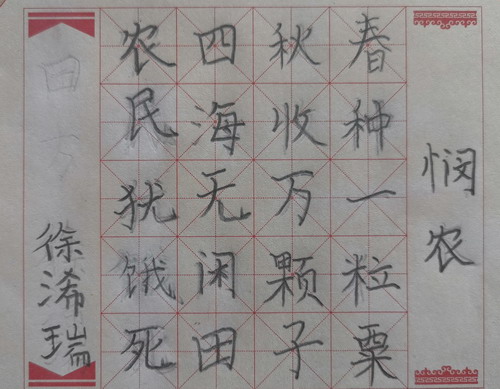 悯农
春种一粒栗
秋收万颗子
四海无闲田
农民犹饿死
徐浠瑞